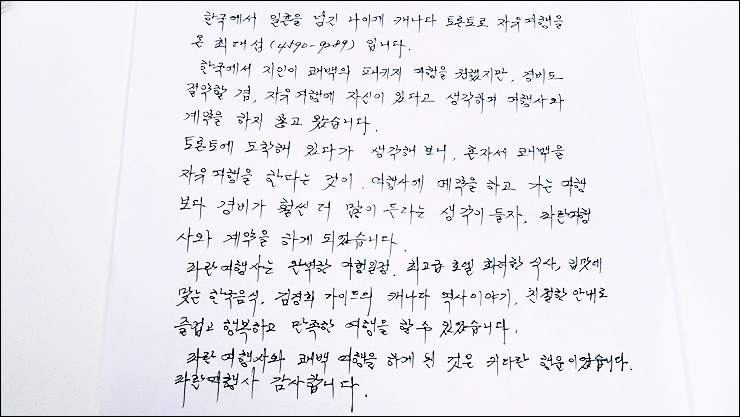 한국에서 일흔을 넘긴 나이에 캐나다 토론토로 자유여행을
온 최대섭(4590-9089) 입니다.
한국에서 지인이 쾌백의 패키지 여행을 권했지만, 경비도
절약할 겸, 자유여행에 자신이 있다고 생각하며 여행사와
계약을 하지 않고 왔습니다.
토론토에 도착해 있다가 생각해 보니, 혼자서 쾌백을
자유여행을 한다는 것이, 여행사에 예약을 하고 가는 여행
보다 경비가 훨씬 더 많이 든다는 생각이 들자, 파란여행
사와 계약을 하게 되었습니다.
파란여행사는 완벽한 여행일정, 최고급 호텔 화려한 식사, 입맛에
맞는 한국음식, 김경희 가이드의 캐나다 역사이야기, 친절한 안내로
즐겁고 행복하고 만족한 여행을 할 수 있었습니다.
파란여행사와 쾌백 여행을 하게 된 것은 커다란 행운이었습니다.
파란여행사 감사합니다.